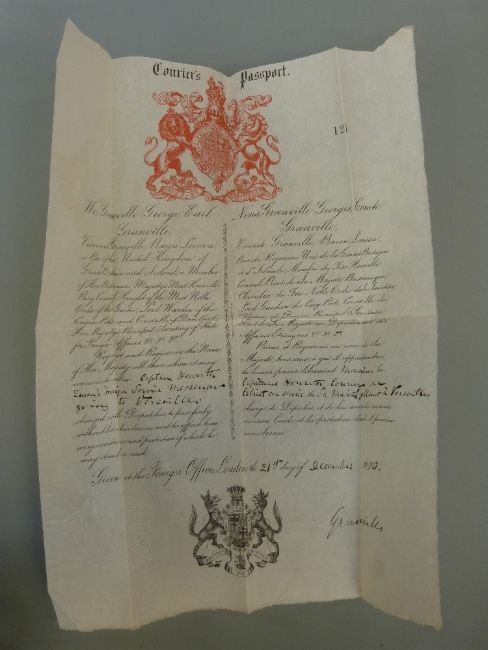 Courier's Passport.
121
We Granville George, Earl
Granville,
Viscount Granville, Baron Leveson,
a Peer of the United Kingdom of
Great Britain and Ireland, a Member
of Her Britannic Majesty's Most Honorable
Privy Council, Knight of the Most Noble
Order of the Garter, Lord Warden of the
Cinque Ports and Constable of Dover Castle,
Her Majesty's Principal Secretary of State
for Foreign Affairs &c &c &c
Request and Require in the Name
of Her Majesty, all those whom it may
concern to allow Captain Howorth
Queen's Foreign Service Messenger
going to Versailles
charged with Dispatches, to pass freely
without let or hindrance, and to afford him
every assistance and protection of which he
may stand in need.
Nous Granville Georges, Comte
Granville,
Vicomte Granville, Baron Leveson,
Pair du Royaume Uni de la Grande Bretagne
et d'Irlande, Membre du Très Honorable
Conseil Privé de Sa Majesté Britannique,
Chevalier du Très Noble Ordre de la Jarretière,
Lord Gardien des Cinq Ports, Connétable du
Château de Douvres, Principal Secrétaire
d'Etat de Sa Majesté au Département des
Affaires Etrangères &c &c &c
Prions et Requérons au nom de Sa
Majesté, tous ceux à qui il appartiendra,
de laisser passer librement Monsieur le
Capitaine Howorth Courrier de
Cabinet au service de Sa Majesté allant à Versailles
chargé de Dépêches, et de lui
Given at the Foreign Office, London, the 21st day of December 1870.
Granville